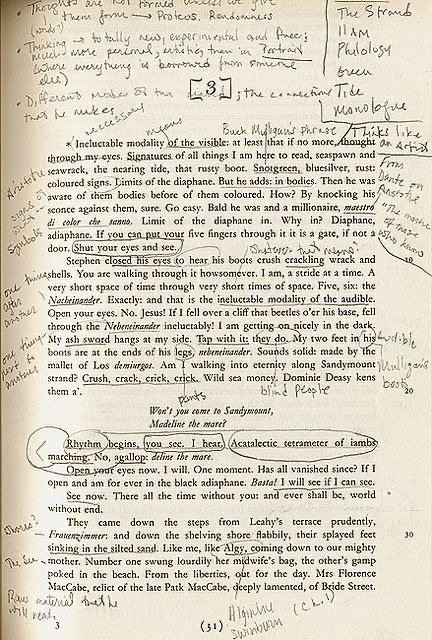 • Thoughts are not formed unless we give
them form → Proteus, Randomness
(words)
• Thinking → totally new, experimental and free;
much more personal, entities than in Portrait
(where everything is borrowed from someone
else)
• Different modes of the ; the connections
that he makes
necessary
The Strand
11 AM
Philology
Green
Tide
Monologue
[3]
means
Buck Mulligan's phrase
Thinks like
an Artist
* Ineluctable modality of the visible: at least that if no more, thought
through my eyes. Signatures of all things I am here to read, seaspawn and
seawrack, the nearing tide, that rusty boot. Snotgreen, bluesilver, rust:
coloured signs. Limits of the diaphane. But he adds: in bodies. Then he was
aware of them bodies before of them coloured. How? By knocking his
sconce against them, sure. Go easy. Bald he was and a millionaire, maestro
di color che sanno. Limit of the diaphane in. Why in? Diaphane,
adiaphane. If you can put your five fingers through it it is a gate, if not a
door. Shut your eyes and see.
From
Dante on
Aristotle
"The master
of those
who know
symbols
whatever that means
Stephen closed his eyes to hear his boots crush crackling wrack and
10
shells. You are walking through it howsomever. I am, a stride at a time. A
very short space of time through very short times of space. Five, six: the
Nacheinander. Exactly: and that is the ineluctable modality of the audible.
Open your eyes. No. Jesus! If I fell over a cliff that beetles o'er his base, fell
through the Nebeneinander ineluctably! I am getting on nicely in the dark.
My ash sword hangs at my side. Tap with it: they do. My two feet in his
boots are at the ends of his legs, nebeneinander. Sounds solid: made by the
mallet of Los demiurgos. Am I walking into eternity along Sandymount
strand? Crush, crack, crick, crick. Wild sea money. Dominie Deasy kens
them a'.
20
one thing
after
another
one thing
next to
another
audible
Mulligan's
boots
pants
blind people
Won't you come to Sandymount,
Madeline the mare?
Rhythm begins, you see. I hear. Acatalectic tetrameter of iambs
marching. No, agallop: deline the mare.
Open your eyes now. I will. One moment. Has all vanished since? If I
open and am for ever in the black adiaphane. Basta! I will see if I can see.
See now. There all the time without you: and ever shall be, world
without end.
They came down the steps from Leahy's terrace prudently,
Frauenzimmer: and down the shelving shore flabbily, their splayed feet
30
sinking in the silted sand. Like me, like Algy, coming down to our mighty
mother. Number one swung lourdily her midwife's bag, the other's gamp
poked in the beach. From the liberties, out for the day. Mrs Florence
MacCabe, relict of the late Patk MacCabe, deeply lamented, of Bride Street.
whores?
The Sea
Raw
material that he
will
3
(31)
Algernon
Swinburn
(Ch. 1)